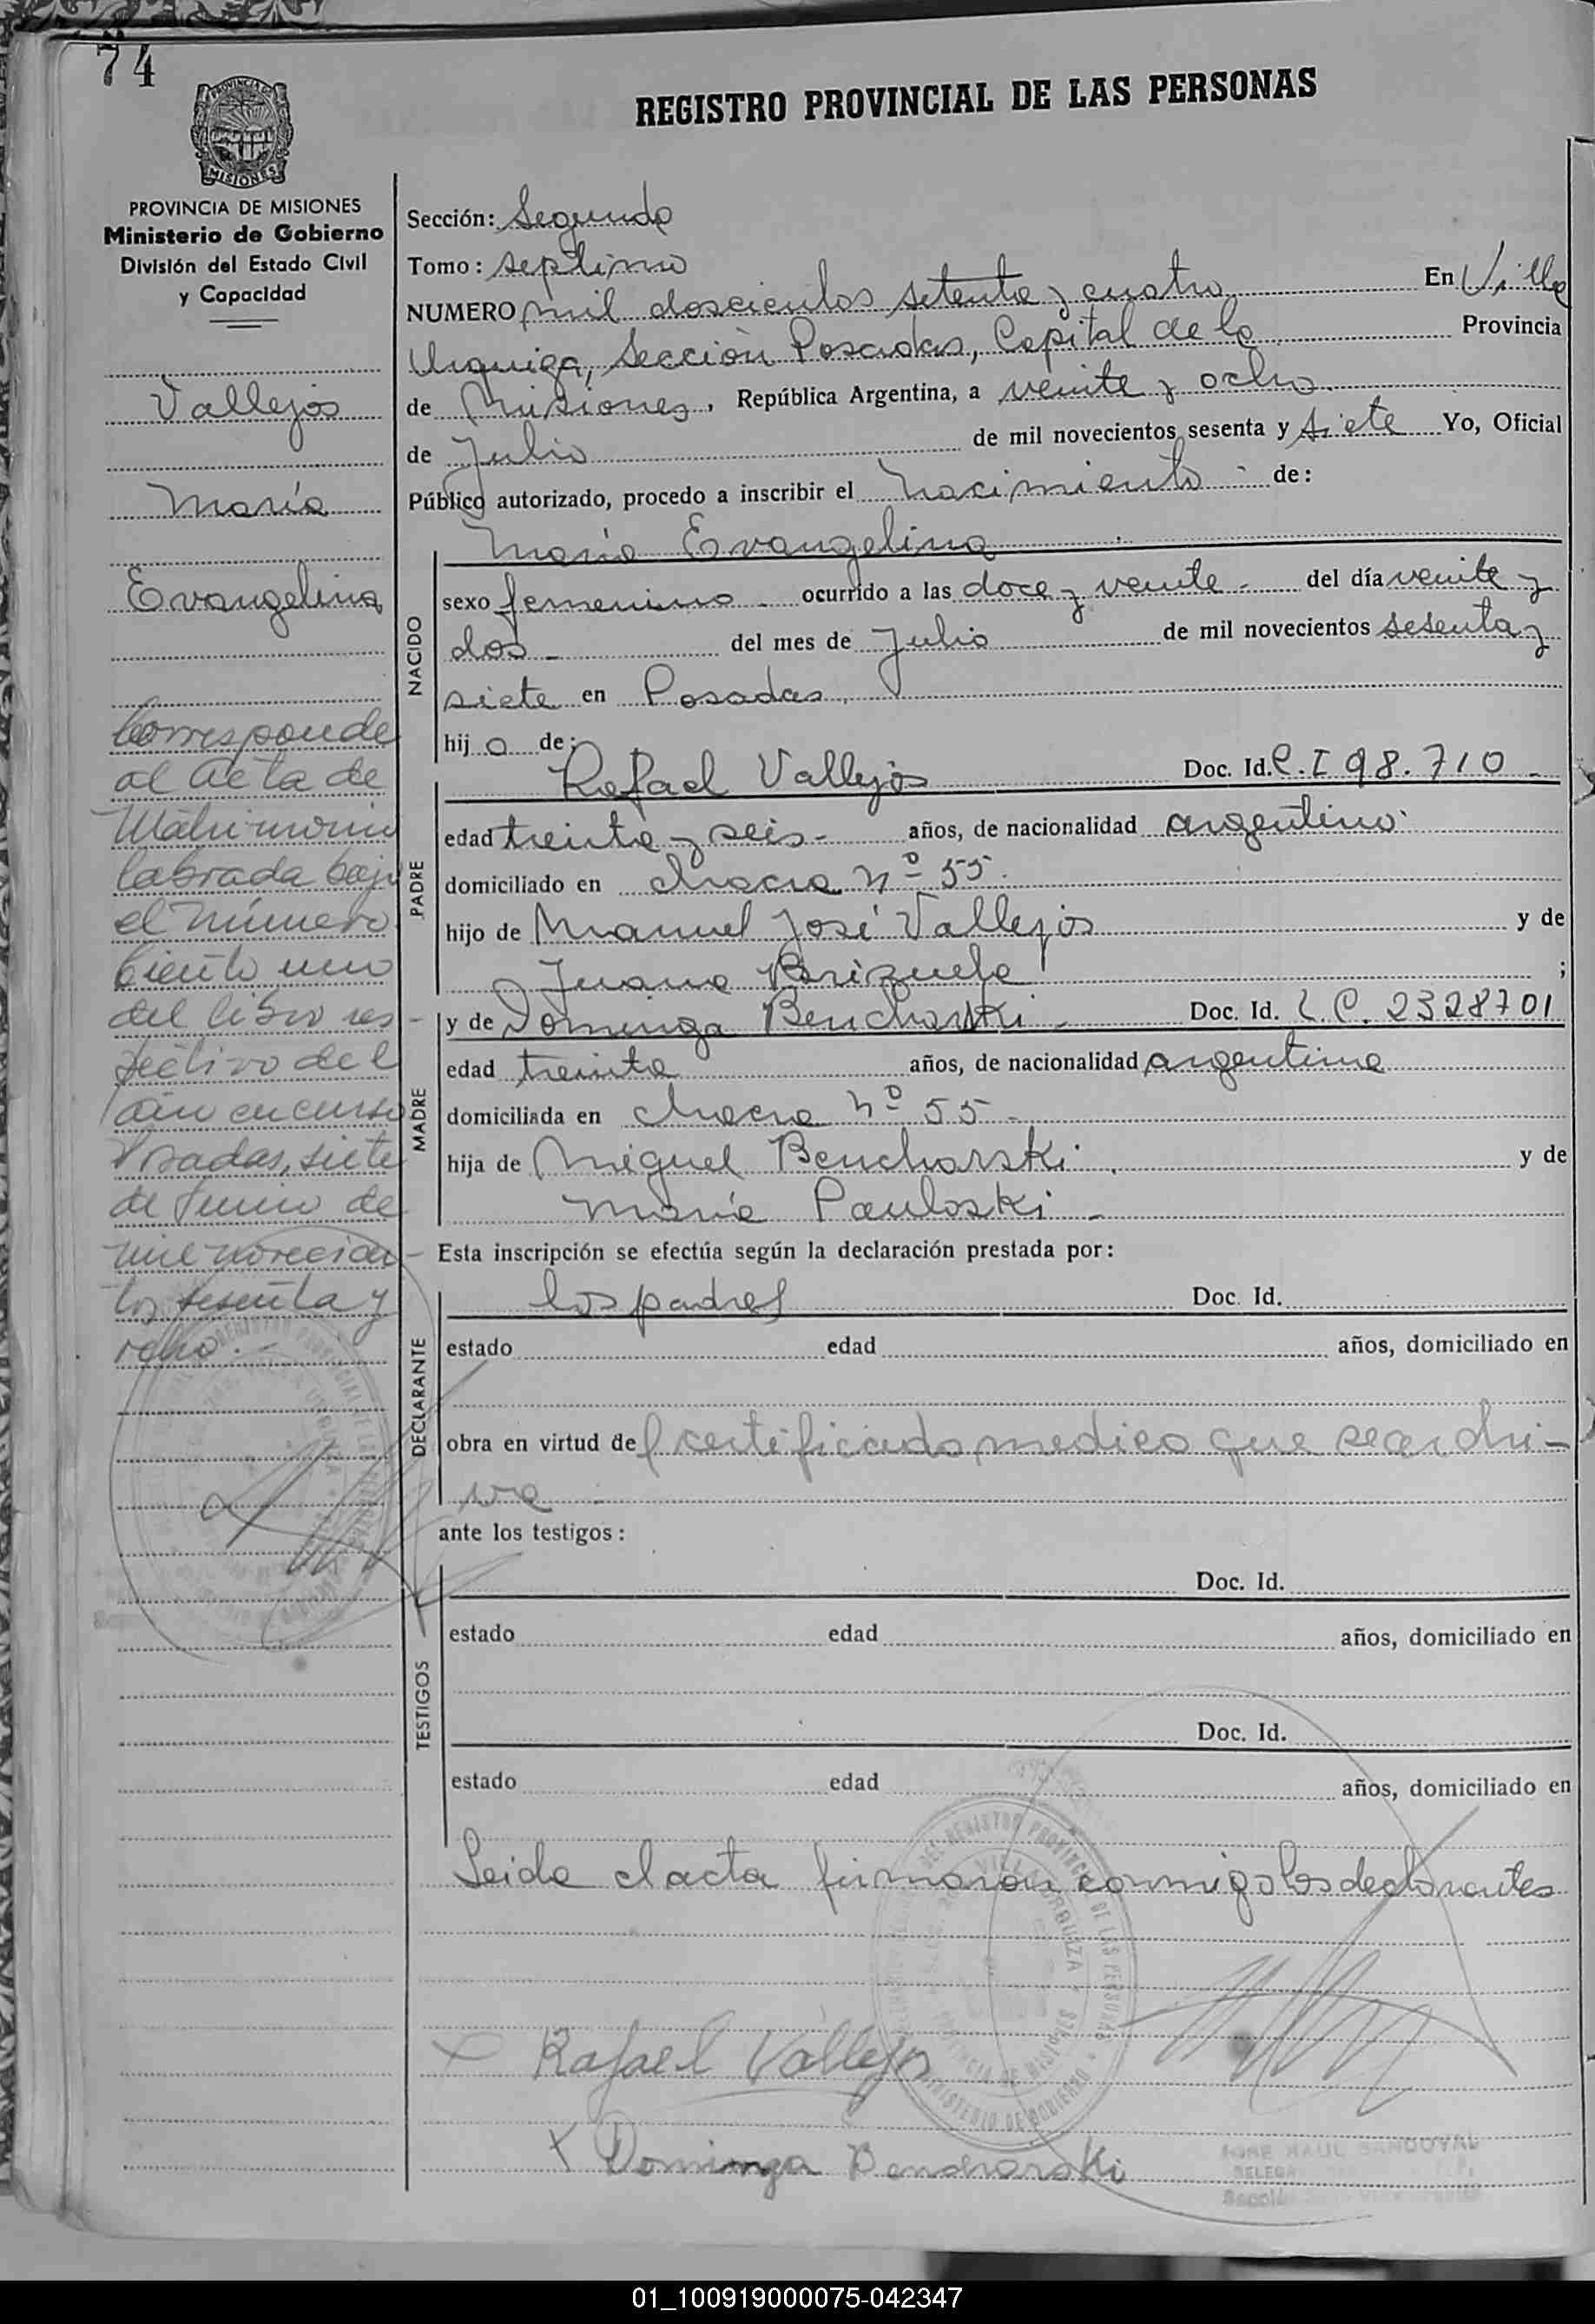 74
REGISTRO PROVINCIAL DE LAS PERSONAS
PROVINCIA DE MISIONES
Ministerio de Gobierno
División del Estado Civil
y Capacidad
Vallejos
María
Evangelina
Corresponde
al acta de
Matrimonio
labrada bajo
el número
ciento uno
del libro res-
pectivo del
año en curso
Posadas, siete
de Junio de
mil novecien-
tos sesenta y
ocho.-
Sección: Segunda
Tomo: septimo
NUMERO mil doscientos setenta y cuatro En Villa
Urquiza, Sección Posadas, Capital de la Provincia
de Misiones, República Argentina, a veinte y ocho
de Julio de mil novecientos sesenta y siete Yo, Oficial
Público autorizado, procedo a inscribir el Nacimiento - de:
María Evangelina
NACIDO
sexo femenino - ocurrido a las doce y veinte - del día veinte y
dos - del mes de Julio de mil novecientos sesenta y
siete en Posadas.
hij a de:
PADRE
Rafael Vallejos Doc. Id. C.I 98.710 -
edad treinta y seis - años, de nacionalidad argentino
domiciliado en chacra nº 55.
hijo de Manuel José Vallejos y de
Juana Brizuela ;
MADRE
y de Dominga Bencharski - Doc. Id. L.C. 2328701
edad treinta años, de nacionalidad argentina
domiciliada en chacra nº 55 -
hija de Miguel Bencharski. y de
María Pauloski -
Esta inscripción se efectúa según la declaración prestada por:
DECLARANTE
los padres Doc. Id.
estado edad años, domiciliado en
obra en virtud del certificado medico que se archi-
va
ante los testigos:
TESTIGOS
Doc. Id.
estado edad años, domiciliado en
Doc. Id.
estado edad años, domiciliado en
Leida el acta firmaron conmigo los declarantes
x Rafael Vallejos
x Dominga Bencharski
JOSE RAUL SANDOVAL
01_100919000075-042347